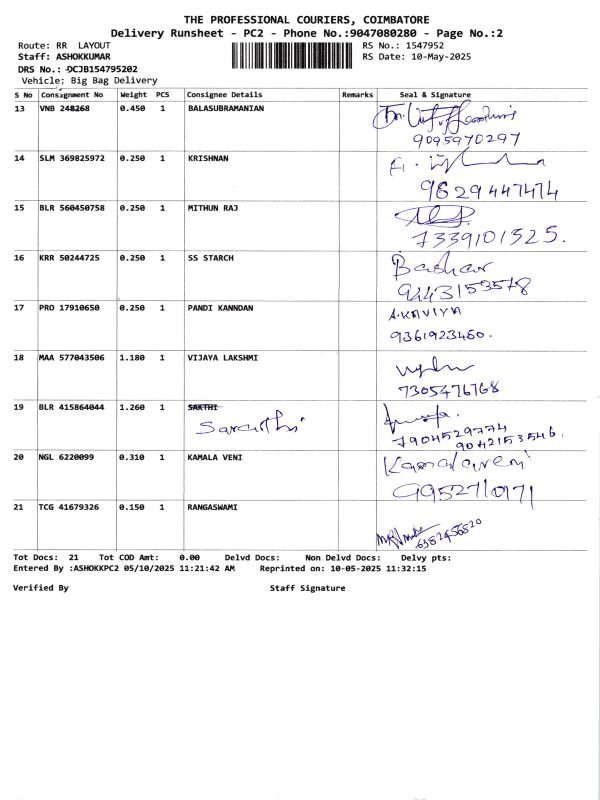 THE PROFESSIONAL COURIERS, COIMBATORE
Delivery Runsheet - PC2 - Phone No.:9047080280 - Page No.:2
Route: RR LAYOUT RS No.: 1547952
Staff: ASHOKKUMAR RS Date: 10-May-2025
DRS No.: DCJB154795202
Vehicle; Big Bag Delivery
S No Consignment No Weight PCS Consignee Details Remarks Seal & Signature
13 VNB 248268 0.450 1 BALASUBRAMANIAN
9095970297
14 SLM 369825972 0.250 1 KRISHNAN
9629447474
15 BLR 560450758 0.250 1 MITHUN RAJ
7339101325.
16 KRR 50244725 0.250 1 SS STARCH Baskar
9443153578
17 PRO 17910650 0.250 1 PANDI KANNDAN A.KAVIYA
9361923460.
18 MAA 577043506 1.180 1 VIJAYA LAKSHMI
7305476768
19 BLR 415864044 1.260 1 SAKTHI
Sarathi
7904529774
9042153546.
20 NGL 6220099 0.310 1 KAMALA VENI Kamalaveni
9952710171
21 TCG 41679326 0.150 1 RANGASWAMI
6382456820
Tot Docs: 21 Tot COD Amt: 0.00 Delvd Docs: Non Delvd Docs: Delvy pts:
Entered By :ASHOKKPC2 05/10/2025 11:21:42 AM Reprinted on: 10-05-2025 11:32:15
Verified By Staff Signature